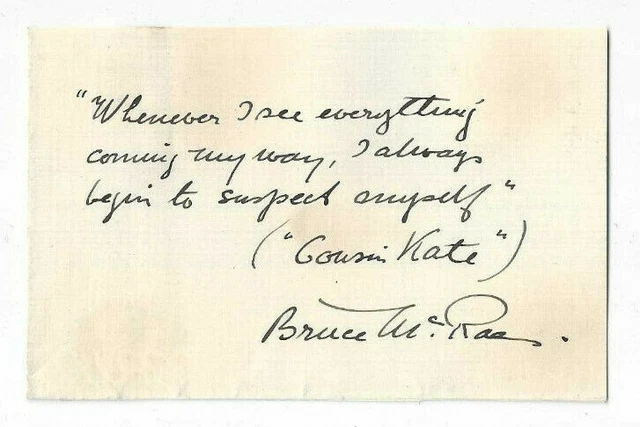 "Whenever I see everything
coming my way, I always
begin to suspect myself"
("Cousin Kate")
Bruce McRae.